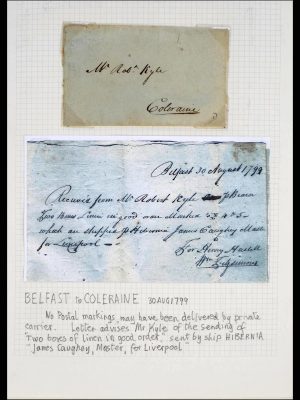 Mr Robt Kyle
Coleraine
Belfast 30 August 1799
Receive from Mr Robert Kyle
Two boxes Linen in good order Marked
which are shipped p Hibernia James Caughey Master
for Liverpool
For Henry
Wm Fitzsimons
BELFAST to COLERAINE 30 AUG 1799
No Postal markings, may have been delivered by private
carrier. Letter advises "Mr Kyle of the sending of
"Two boxes of linen in good order," sent by ship HIBERNIA
"James Caughey, Master, for Liverpool"